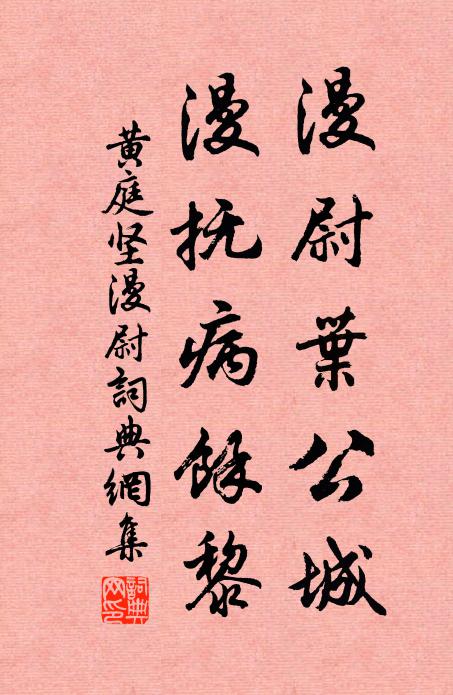 漫尉葉公城
漫抚病餘黎
黄庭坚漫尉詞典網集
詞典网印